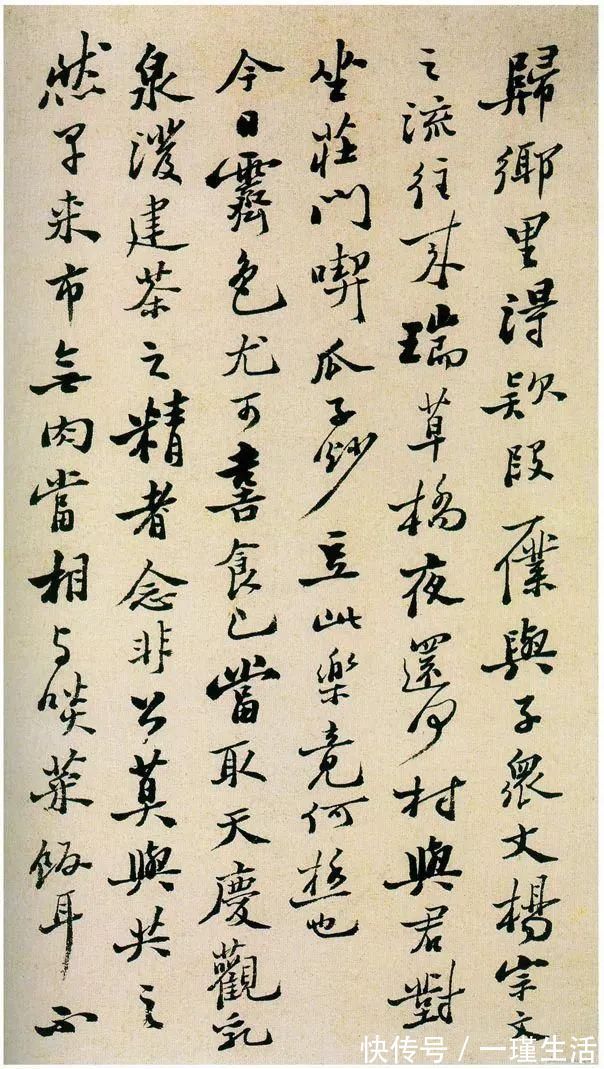 歸鄉里得款段一僕與子衆丈楊宗文
之流往來瑞草橋夜還何村與君對
坐莊門喫瓜子炒豆此樂竟何極也
今日霽色尤可喜食已當取天慶觀乳
泉潑建茶之精者念非公莫與共之
然早來市無肉當相与啖菜飯耳不
快传号/一瑾生活